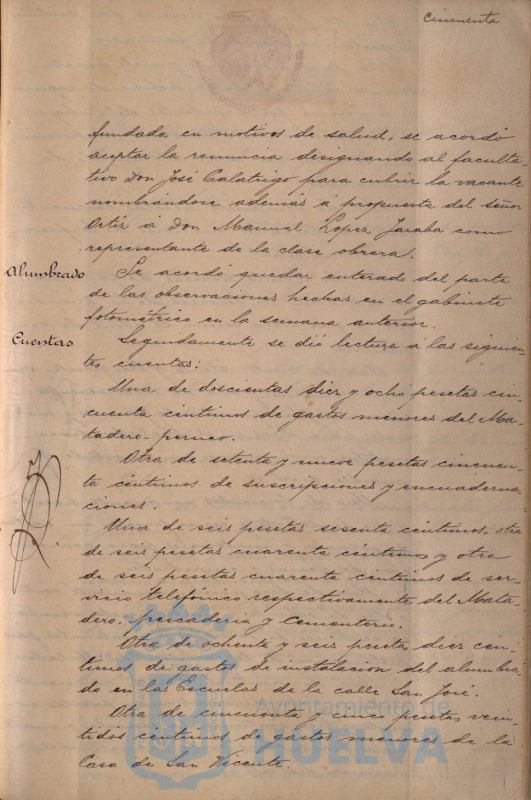 Cincuenta
fundada en motivos de salud, se acordó
aceptar la renuncia designando al faculta-
tivo Don José Calatrigo para cubrir la vacante
nombrándose además a propuesta del señor
Ortíz á Don Manuel Lopez Jaraba como
representante de la clase obrera.
Alumbrado
Se acordó quedar enterado del parte
de las observaciones hechas en el gabinete
fotométrico en la semana anterior.
Cuentas
Seguidamente se dió lectura á las siguien-
tes cuentas:
Una de doscientas diez y ocho pesetas cin-
cuenta céntimos de gastos menores del Ma-
tadero-porneo.
Otra de setenta y nueve pesetas cincuen-
ta céntimos de suscripciones y encuaderna-
ciones.
Una de seis pesetas sesenta céntimos, otra
de seis pesetas cuarenta céntimos y otra
de seis pesetas cuarenta centimos de ser-
vicio telefónico respectivamente del Mata-
dero, pescadería y Cementerio.
Otra de ochenta y seis peseta diez cen-
timos de gastos de instalacion del alumbra-
do en las Escuelas de la calle San José.
Otra de cincuenta y cinco pesetas vein-
tidos céntimos de gastos menores de la
Casa de San Vicente.
Ayuntamiento de
HUELVA